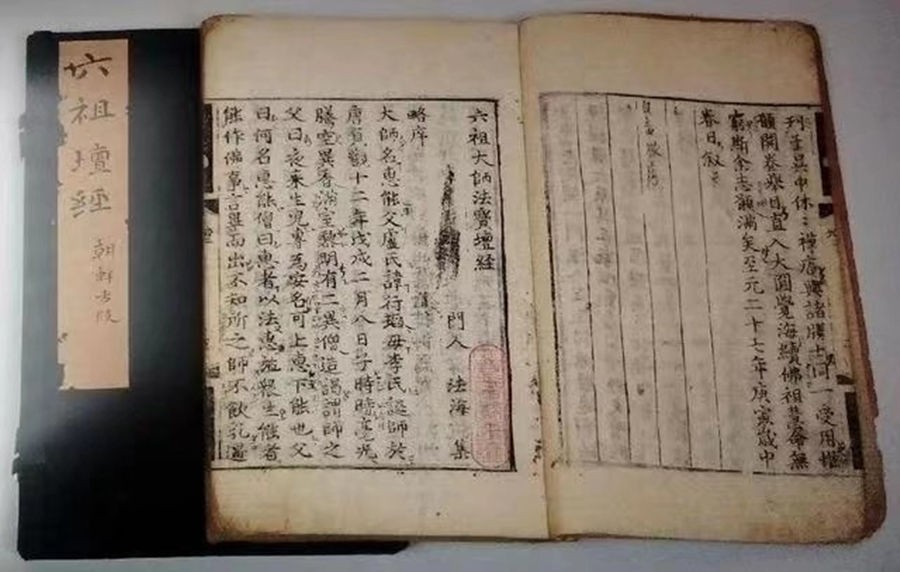 六祖壇經
朝鮮古版
刊在吳中休休禪庵與諸勝士同一受用惟
願開卷舉目直入大圓覺海續佛祖慧命無
窮斯余志願滿矣至元二十七年庚寅歲中
春日敘
六祖大師法寶壇經
門人 法海 集
略序
大師名惠能父盧氏諱行瑫母李氏誕師於
唐貞觀十二年戊戌二月八日子時時毫光
騰空異香滿室黎明有二異僧造謁謂師之
父曰夜來生兒專為安名可上惠下能也父
曰何名惠能僧曰惠者以法惠施衆生能者
能作佛事言畢而出不知所之師不飲乳遇